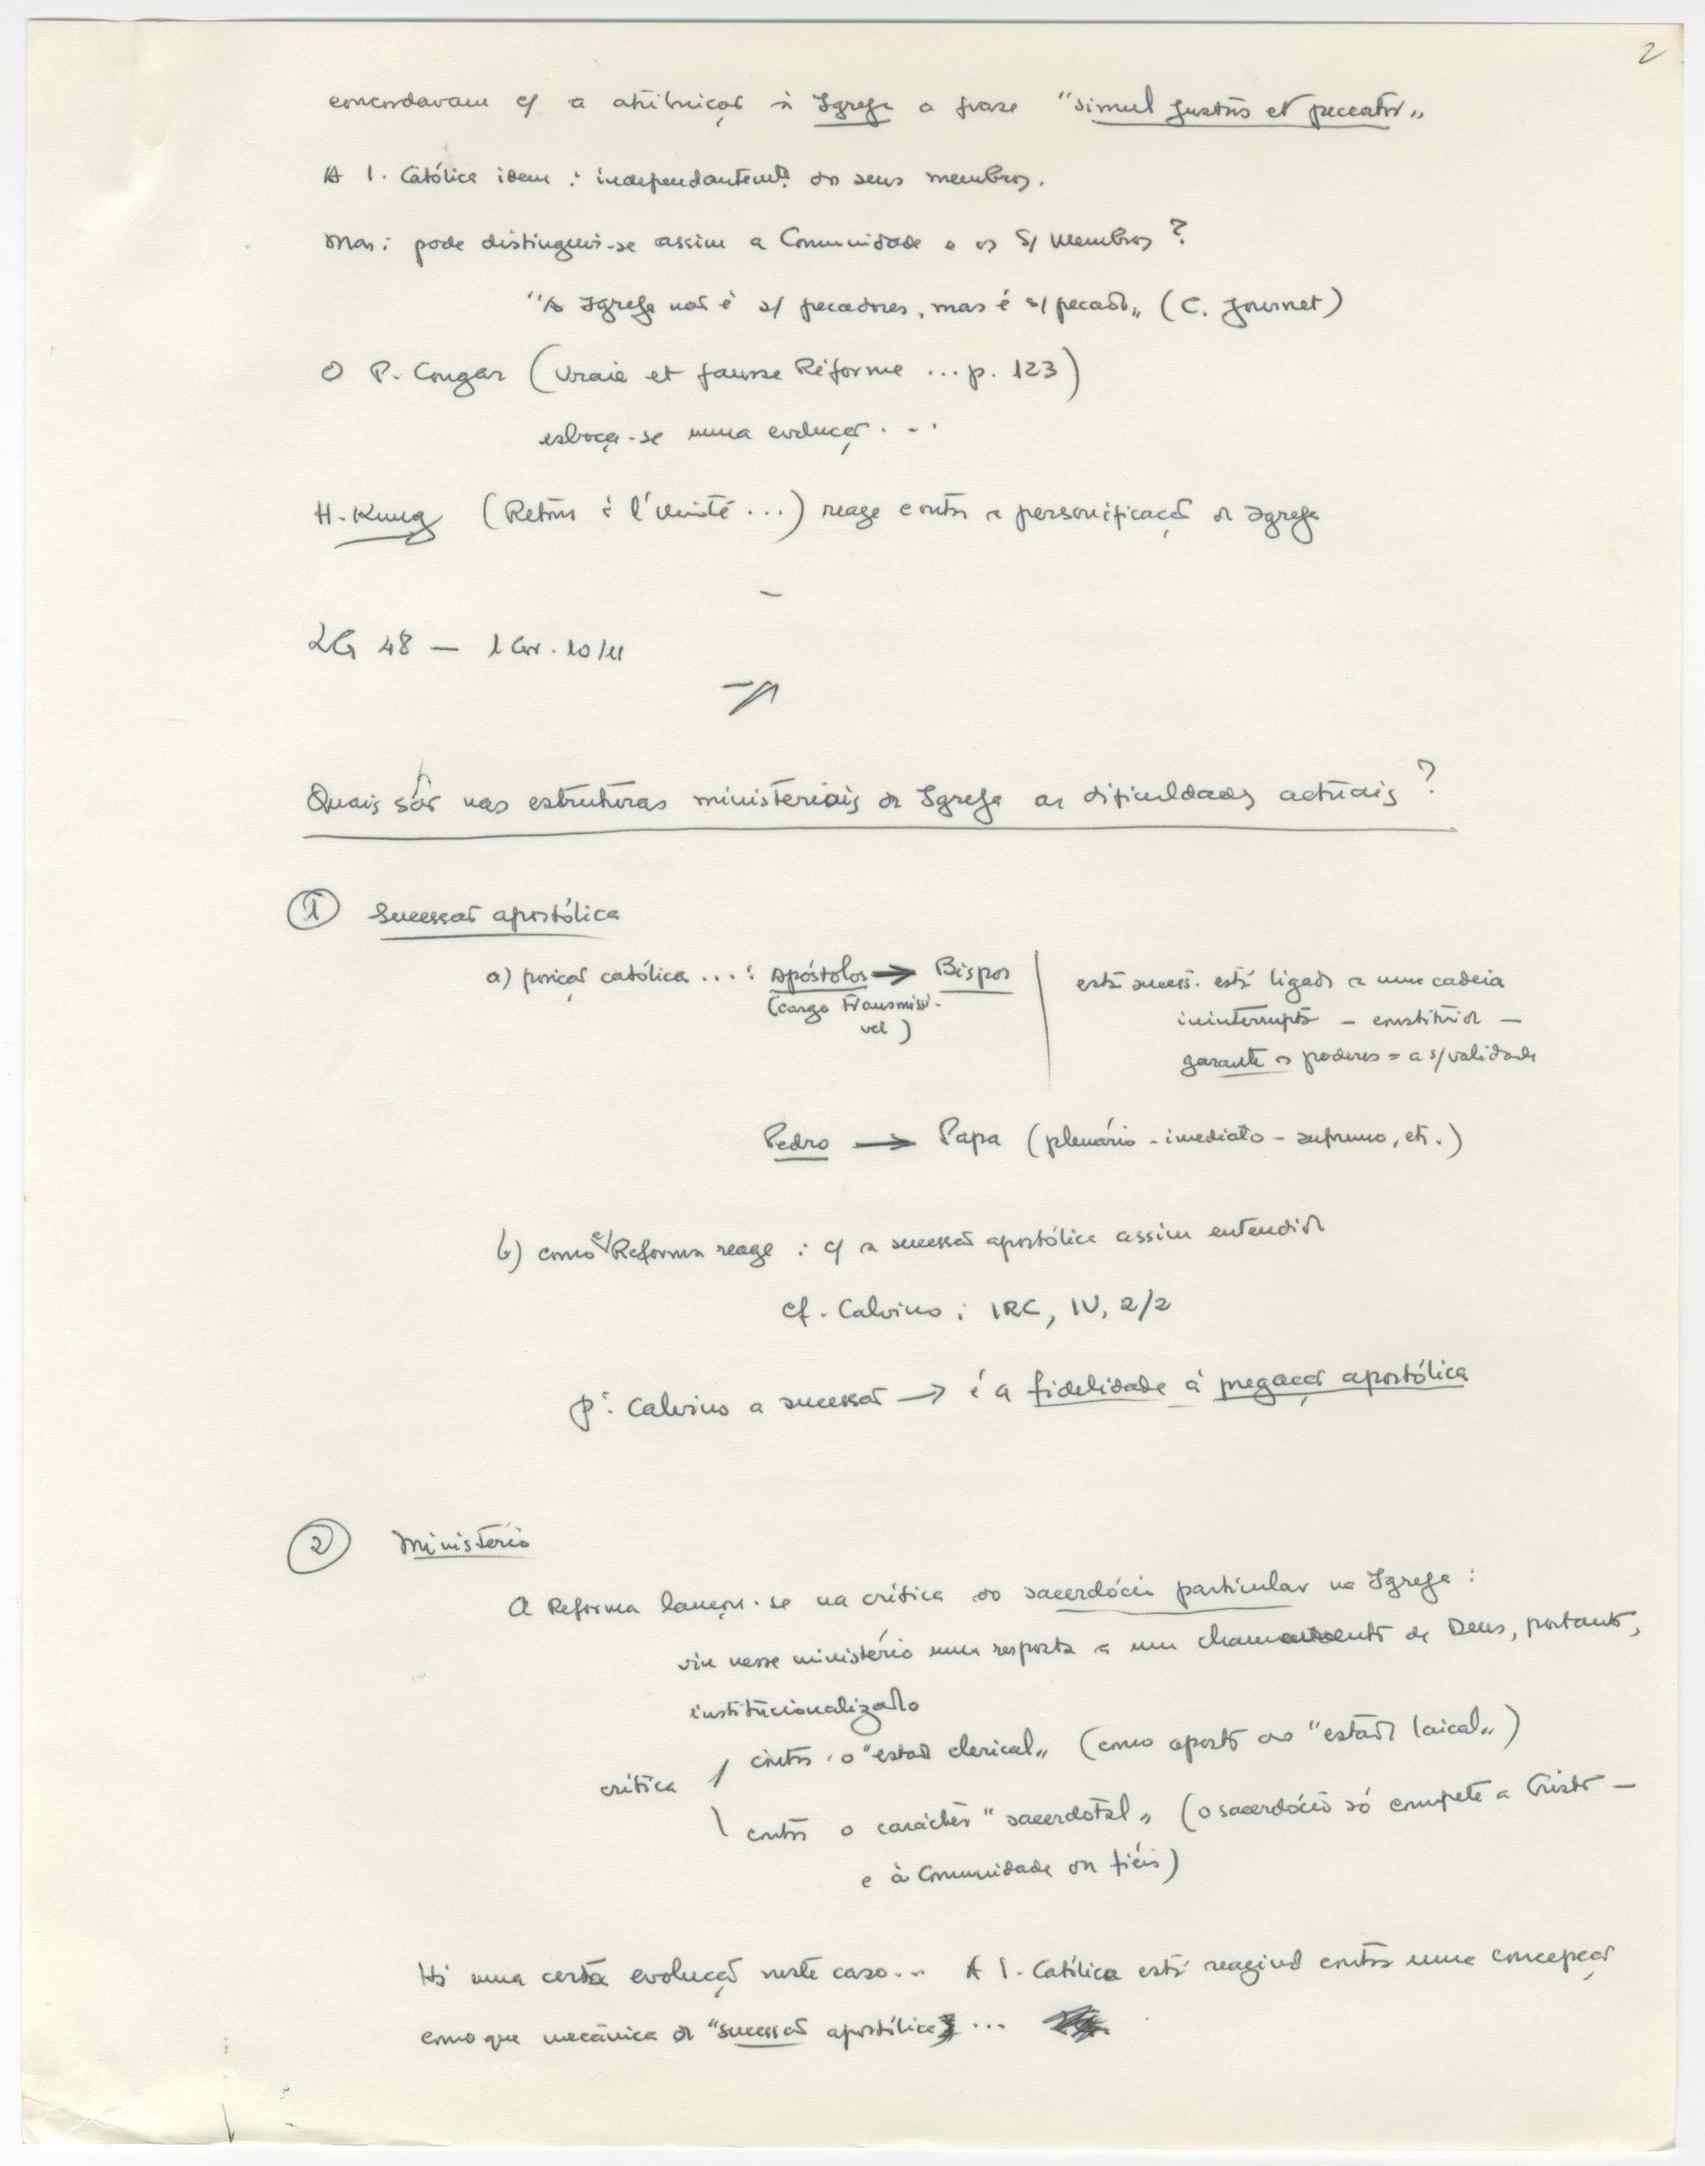 2
concordavam c/ a atribuiçaõ à Igreja a frase "simul justus et peccator"
A I. Católica idem: independantemte. dos seus membros.
Mas: pode distinguir-se assim a Comunidade e os s/ Membros?
"A Igreja naõ é s/ pecadores, mas é s/ pecado" (C. Journet)
O P. Congar (Vraie et fausse Réforme ... p. 123)
esboça-se numa evoluçaõ . . .
H. Kung (Retour à l'Unité ...) reage contra a personificaçaõ da Igreja
–
LG 48 — 1 Cor. 10/11
Quais saõ nas estruturas ministeriais da Igreja as dificuldades actuais?
1 Sucessaõ apostólica
a) posiçaõ católica ...: Apóstolos → Bispos
(cargo transmissí-
vel)
esta sucess. está ligada a uma cadeia
ininterrupta – constituída –
garante os poderes = a s/ validade
Pedro → Papa (plenário - imediato - supremo, etc.)
b) como a Reforma reage: c/ a sucessaõ apostólica assim entendida
cf. Calvino: IRC, IV, 2/2
pa. Calvino a sucessaõ → é a fidelidade à pregaçaõ apostólica
2 Ministério
A Reforma lançou-se na crítica do sacerdócio particular na Igreja:
viu nesse ministério uma resposta a um chamamento de Deus, portanto,
institucionalizado
crítica
contra o "estado clerical" (como oposto ao "estado laical")
contra o carácter "sacerdotal" (o sacerdócio só compete a Cristo –
e à Comunidade dos fiéis)
Há uma certa evoluçaõ neste caso... A I. Católica está reagindo contra uma concepçaõ
como que mecânica da "sucessaõ apostólica" ...